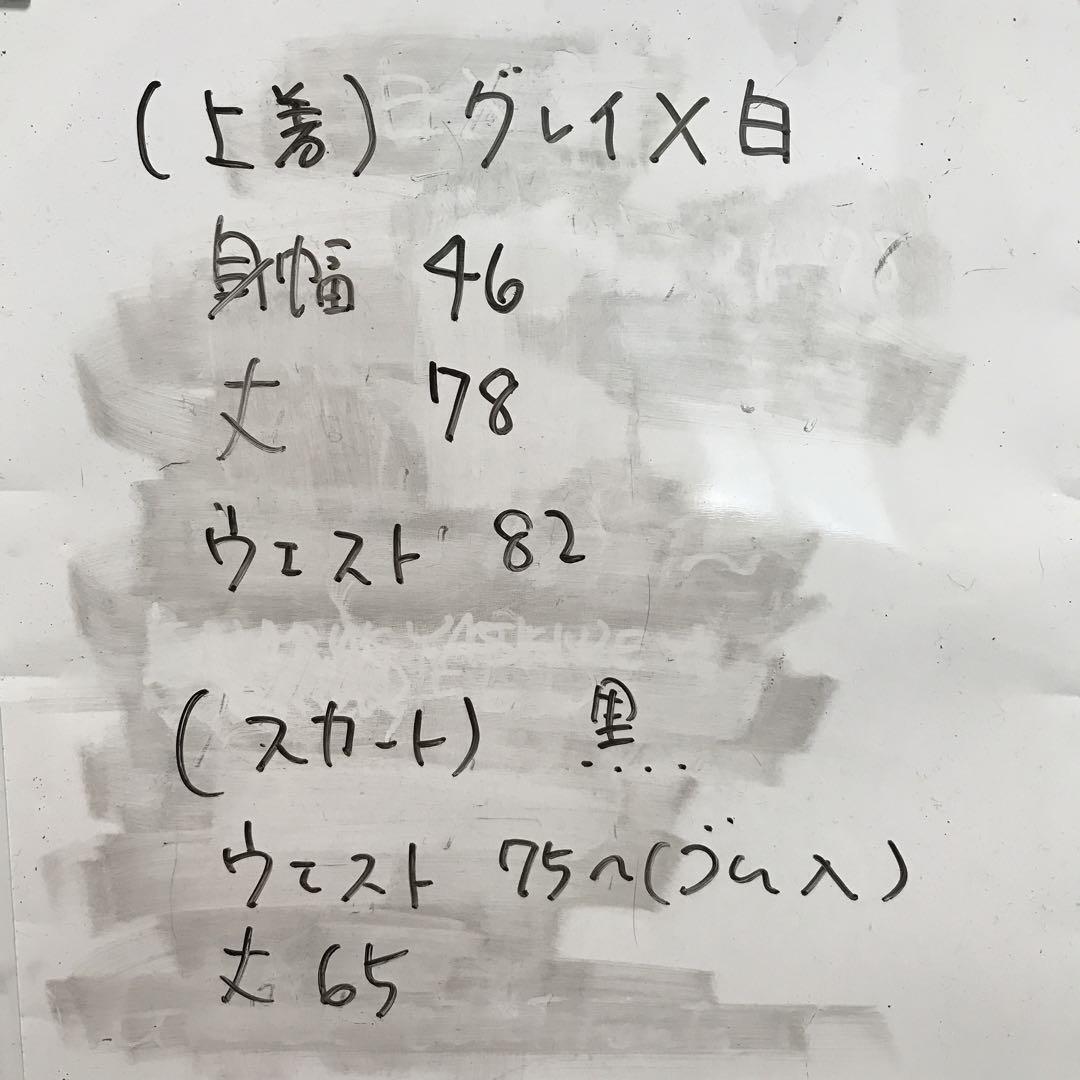 (上着) グレイ×白
身幅 46
丈 78
ウエスト 82
(スカート) 黒
ウエスト 75〜(ゴム入)
丈 65